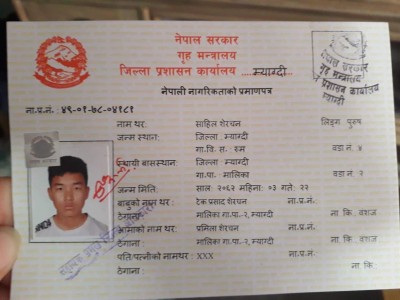 नेपाल सरकार
गृह मन्त्रालय
जिल्ला प्रशासन कार्यालय म्याग्दी
नेपाल सरकार
गृह मन्त्रालय
प्रशासन कार्यालय
म्याग्दी
नेपाली नागरिकताको प्रमाणपत्र
ना.प्र.नं.: ४९-०१-७८-०४१८१
नाम थर: साहिल शेरचन लिङ्ग: पुरुष
जन्म स्थान: जिल्ला: म्याग्दी
गा.वि.स.: रुम वडा नं. ४
स्थायी बासस्थान: जिल्ला: म्याग्दी
गा.पा.: मालिका वडा नं. २
जन्म मिति: साल: २०६२ महिना: ०३ गते: २२
बाबुको नाम थर: टेक प्रसाद शेरचन ना.प्र.नं.
ठेगाना: मालिका गा.पा.-२, म्याग्दी ना कि. वंशज
आमाको नाम थर: प्रमिला शेरचन ना.प्र.नं.
ठेगाना: मालिका गा.पा.-२, म्याग्दी ना कि. वंशज
पति/पत्नीको नामथर: XXX ना.प्र.नं.
ठेगाना: ना कि.